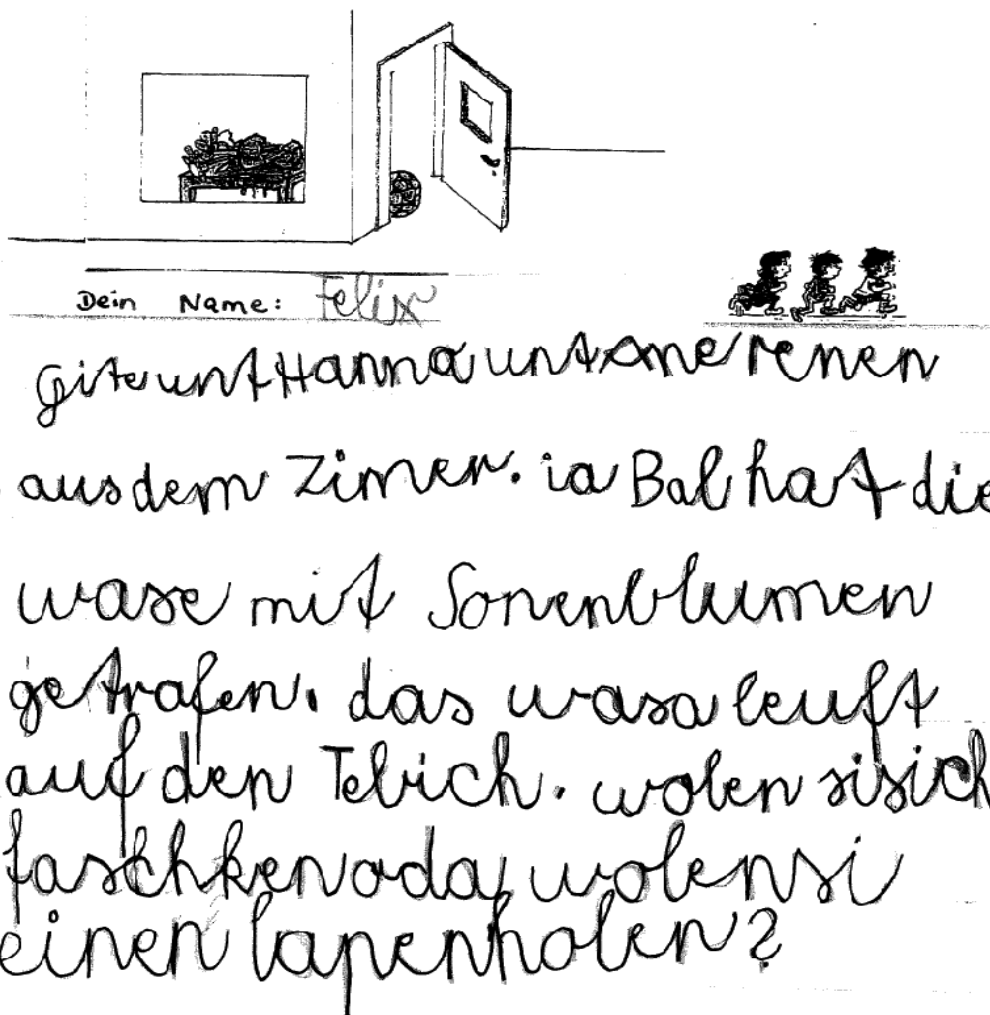 Dein Name: Felix
Gite unt Hanna unt Ane renen
aus dem Zimer. ia Bal hat die
wase mit Sonenblumen
getrafen. das wasa leuft
auf den Tebich. wolen si sich
faschken oda wolen si
einen lapen holen?